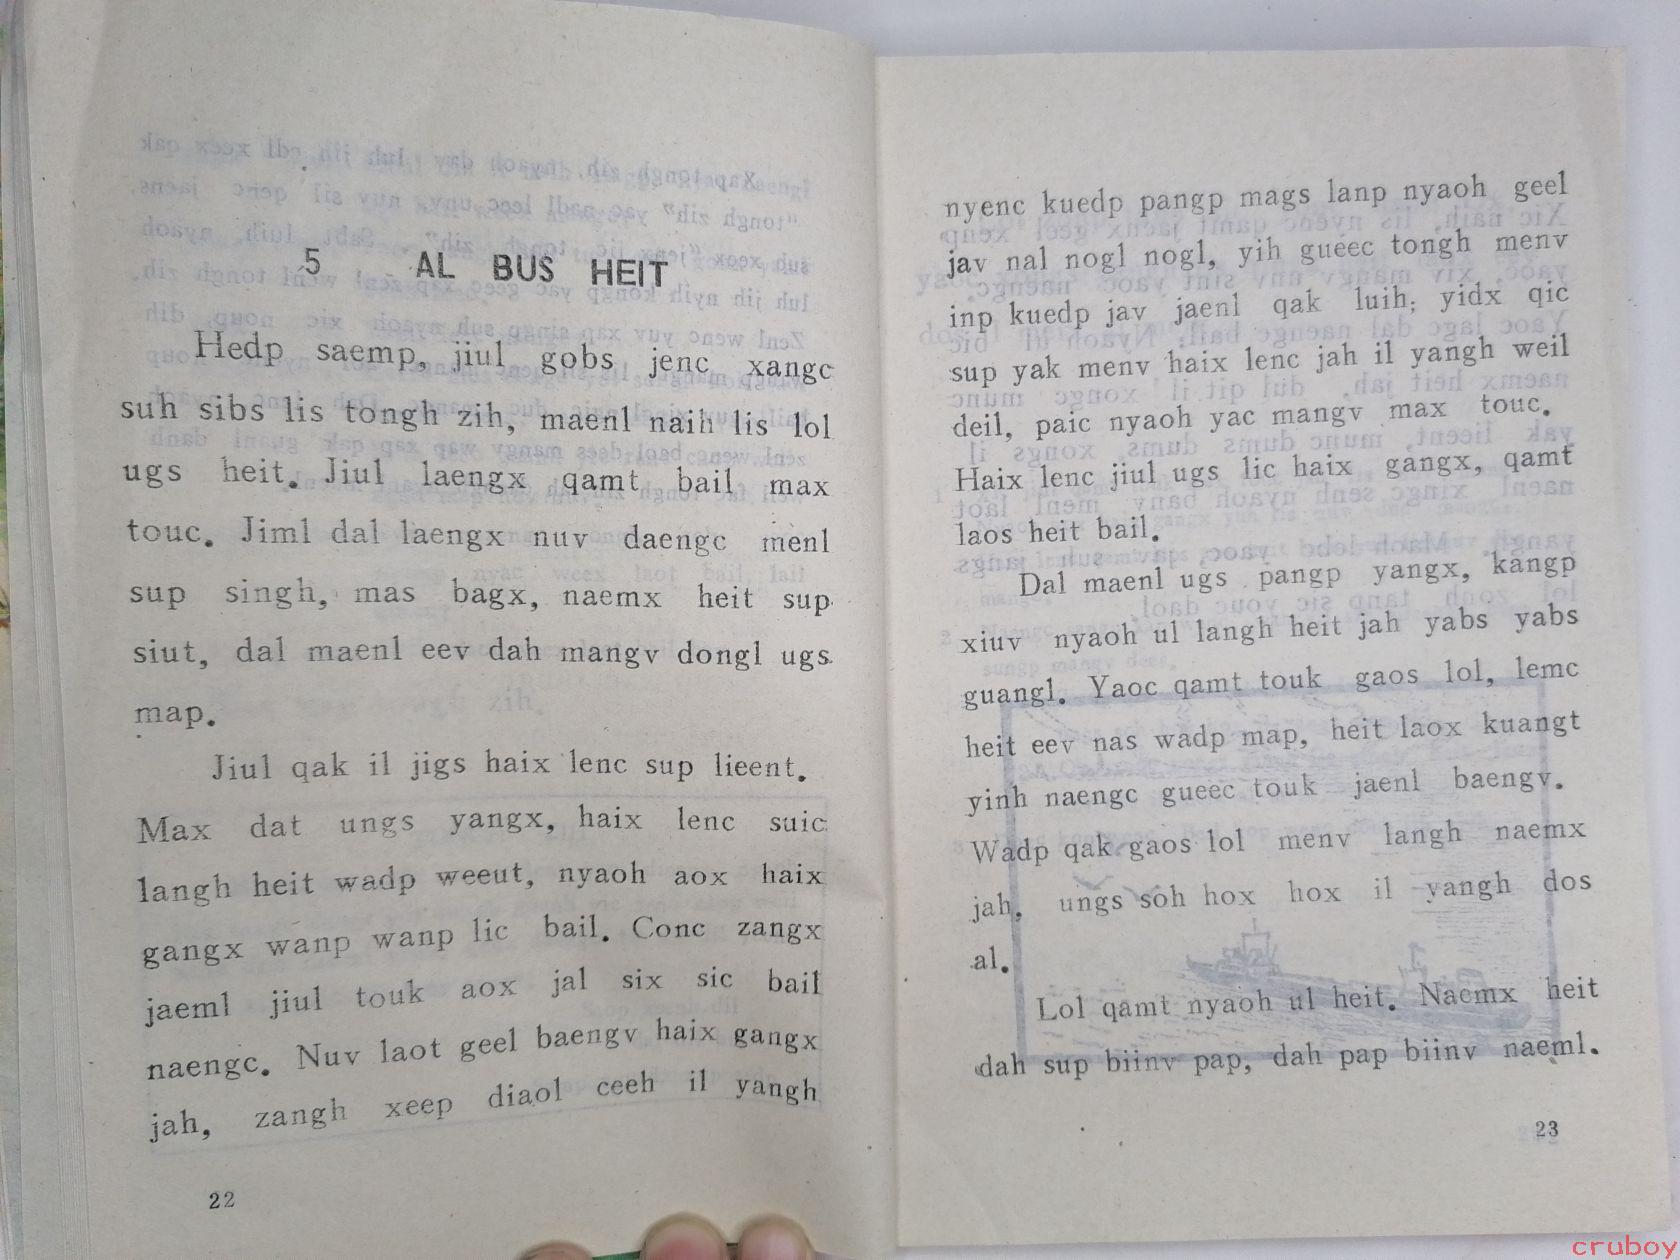 5 AL BUS HEIT
Hedp saemp, jiul gobs jenc xangc
suh sibs lis tongh zih, maenl naih lis lol
ugs heit. Jiul laengx qamt bail max
touc. Jiml dal laengx nuv daengc menl
sup singh, mas bagx, naemx heit sup
siut, dal maenl eev dah mangv dongl ugs
map.
Jiul qak il jigs haix lenc sup lieent.
Max dat ungs yangx, haix lenc suic
langh heit wadp weeut, nyaoh aox haix
gangx wanp wanp lic bail. Conc zangx
jaeml jiul touk aox jal six sic bail
naengc. Nuv laot geel baengv haix gangx
jah, zangh xeep diaol ceeh il yangh
22
nyenc kuedp pangp mags lanp nyaoh geel
jav nal nogl nogl, yih gueec tongh menv
inp kuedp jav jaenl qak luih; yidx qic
sup yak menv haix lenc jah il yangh weil
deil, paic nyaoh yac mangv max touc.
Haix lenc jiul ugs lic haix gangx, qamt
laos heit bail.
Dal maenl ugs pangp yangx, kangp
xiuv nyaoh ul langh heit jah yabs yabs
guangl. Yaoc qamt touk gaos lol, lemc
heit eev nas wadp map, heit laox kuangt
yinh naengc gueec touk jaenl baengv.
Wadp qak gaos lol menv langh naemx
jah, ungs soh hox hox il yangh dos
al.
Lol qamt nyaoh ul heit. Naemx heit
dah sup biinv pap, dah pap biinv naeml.
23
cruboy